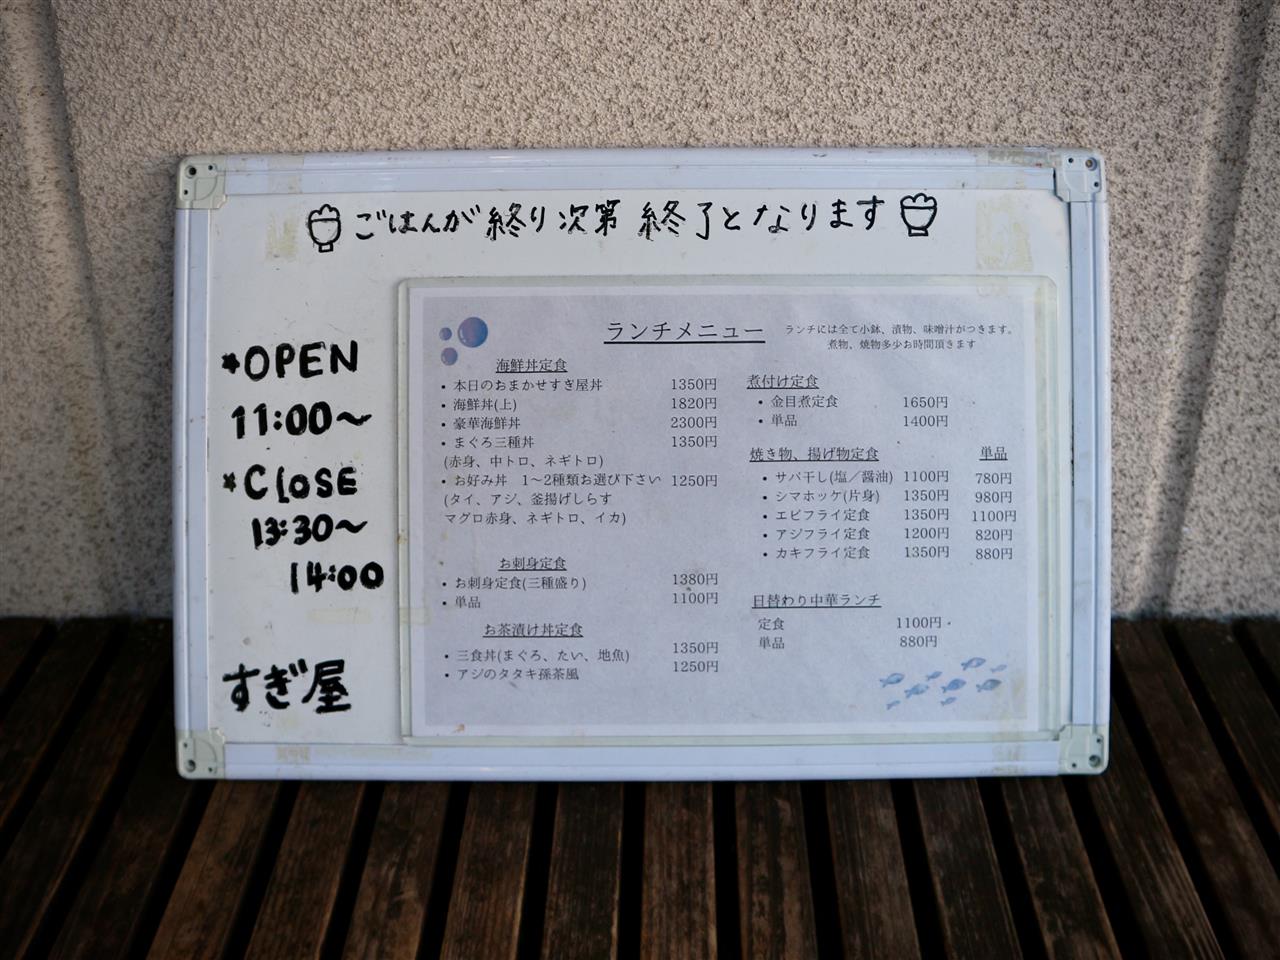 ごはんが終り次第 終了となります
*OPEN
11:00〜
*CLOSE
13:30〜
14:00
すぎ屋
ランチメニュー
ランチには全て小鉢、漬物、味噌汁がつきます。
煮物、焼物多少お時間頂きます
海鮮丼定食
・本日のおまかせすぎ屋丼 1350円
・海鮮丼(上) 1820円
・豪華海鮮丼 2300円
・まぐろ三種丼 1350円
(赤身、中トロ、ネギトロ)
・お好み丼 1〜2種類お選び下さい 1250円
(タイ、アジ、釜揚げしらす
マグロ赤身、ネギトロ、イカ)
お刺身定食
・お刺身定食(三種盛り) 1380円
・単品 1100円
お茶漬け丼定食
・三食丼(まぐろ、たい、地魚) 1350円
・アジのタタキ孫茶風 1250円
煮付け定食
・金目煮定食 1650円
・単品 1400円
焼き物、揚げ物定食 単品
・サバ干し(塩／醤油) 1100円 780円
・シマホッケ(片身) 1350円 980円
・エビフライ定食 1350円 1100円
・アジフライ定食 1200円 820円
・カキフライ定食 1350円 880円
日替わり中華ランチ
定食 1100円
単品 880円